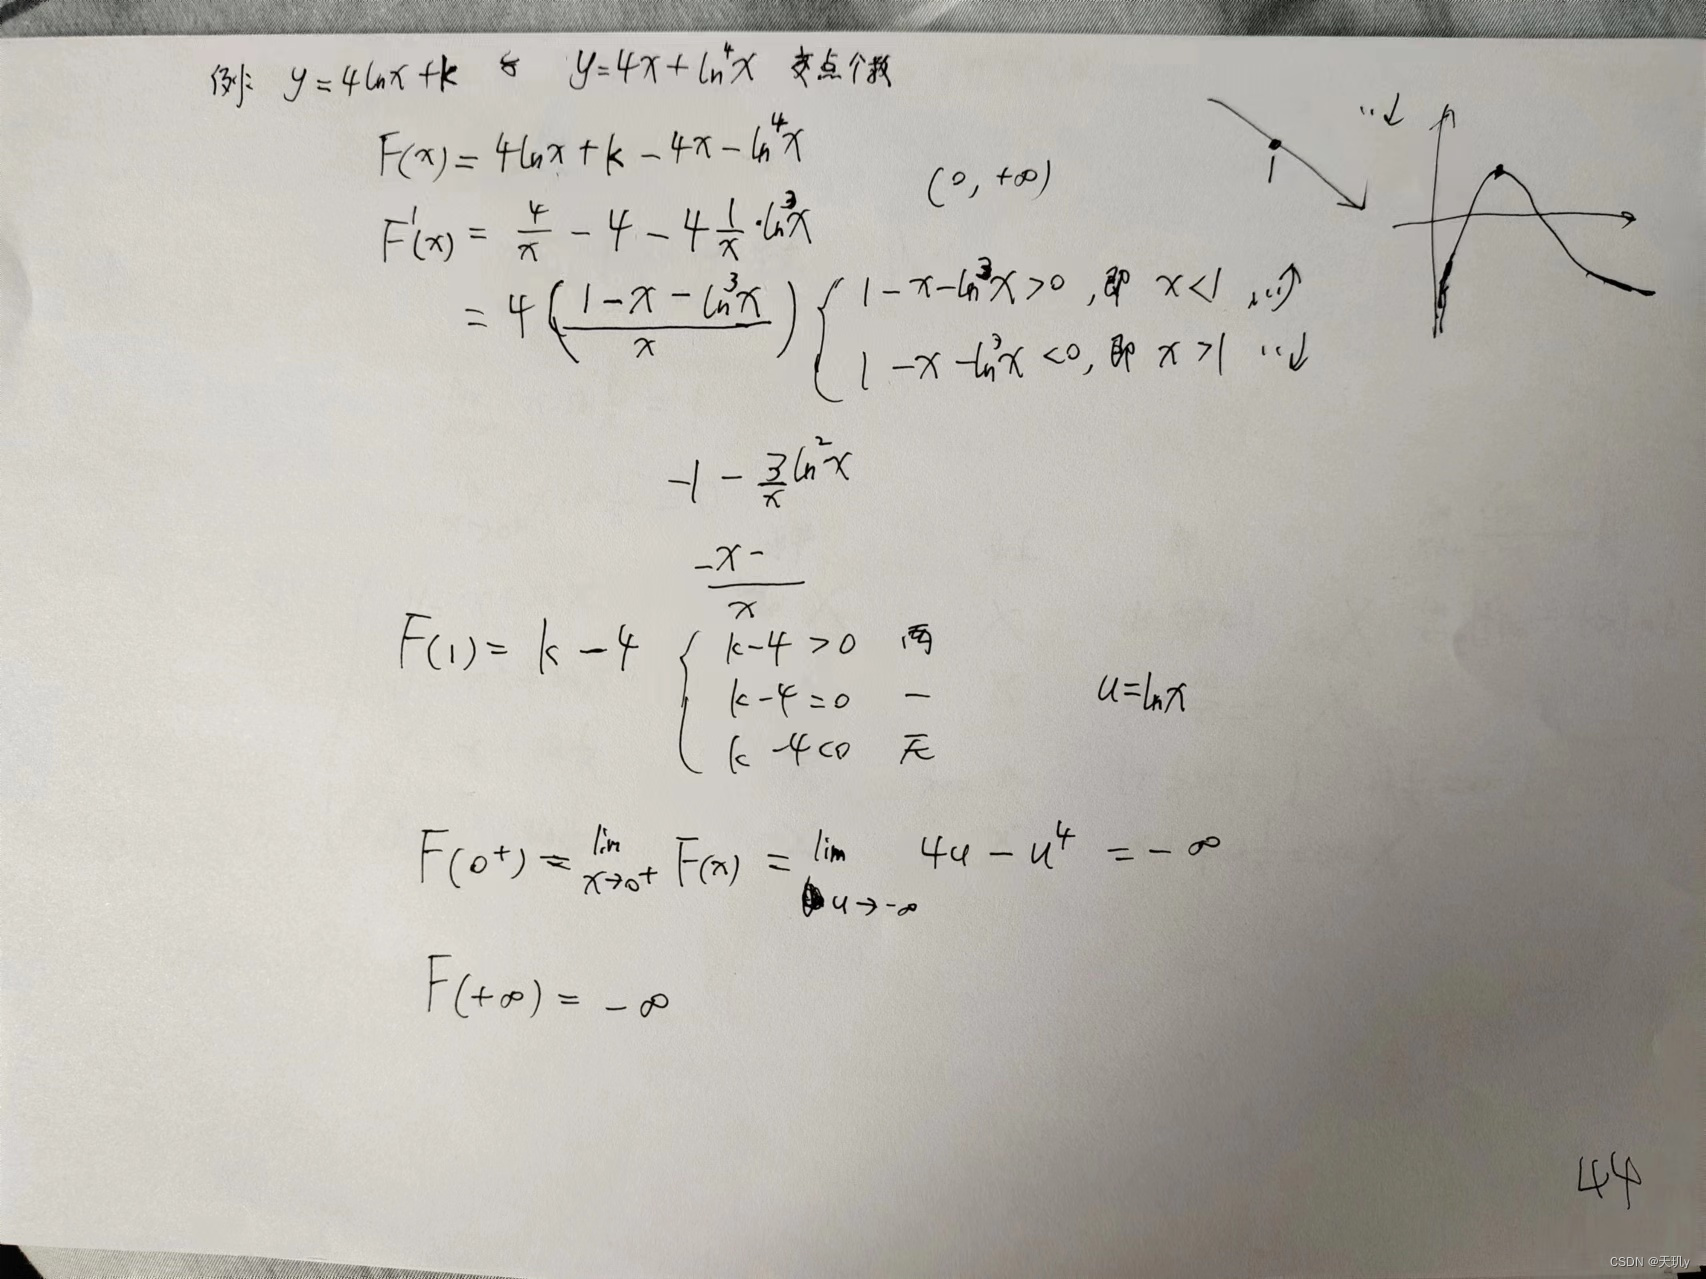 例: y=4lnx+k 与 y=4x+ln⁴x 交点个数
F(x)=4lnx+k-4x-ln⁴x
(0,+∞)
F'(x)=4/x-4-4 1/x·ln³x
=4((1-x-ln³x)/x) { 1-x-ln³x>0,即 x<1 ,∴↗
1-x-ln³x<0,即 x>1 ∴↓
1
∴↓
-1-3/x ln²x
-x-
x
F(1)=k-4 { k-4>0 两
k-4=0 一
k-4<0 无
u=lnx
F(0⁺)=lim x→0⁺ F(x)=lim u→-∞ 4u-u⁴=-∞
F(+∞)=-∞
44
CSDN @天玑y